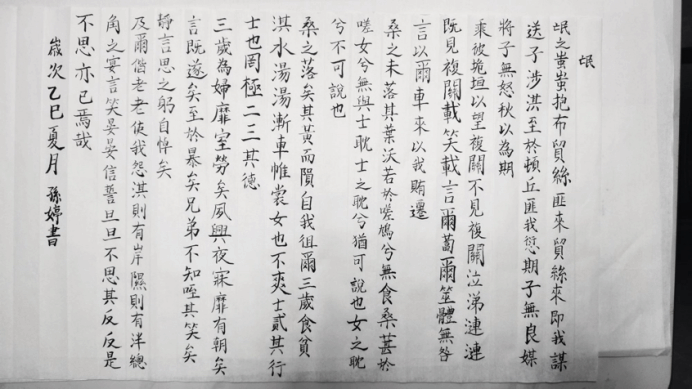 氓
氓之蚩蚩抱布貿絲匪來貿絲來即我謀
送子涉淇至於頓丘匪我愆期子無良媒
將子無怒秋以為期
乘彼垝垣以望複關不見複關泣涕漣漣
既見複關載笑載言爾蔔爾筮體無咎
言以爾車來以我賄遷
桑之未落其葉沃若於嗟鳩兮無食桑葚於
嗟女兮無與士耽士之耽兮猶可說也女之耽
兮不可說也
桑之落矣其黃而隕自我徂爾三歲食貧
淇水湯湯漸車帷裳女也不爽士貳其行
士也罔極二三其德
三歲為婦靡室勞矣夙興夜寐靡有朝矣
言既遂矣至於暴矣兄弟不知咥其笑矣
靜言思之躬自悼矣
及爾偕老老使我怨淇則有岸隰則有泮總
角之宴言笑晏晏信誓旦旦不思其反反是
不思亦已焉哉
歲次乙巳夏月 孫婷書